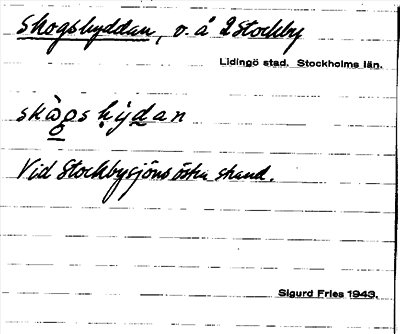 Skogshyddan, v. å 2 Stockby
Lidingö stad. Stockholms län.
skògshydan
Vid Stockbysjöns östra strand.
Sigurd Fries 1943.